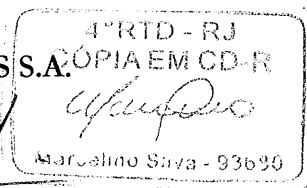 4º RTD - RJ
S S.A. CÓPIA EM CD-R
Marcelino Silva - 93690